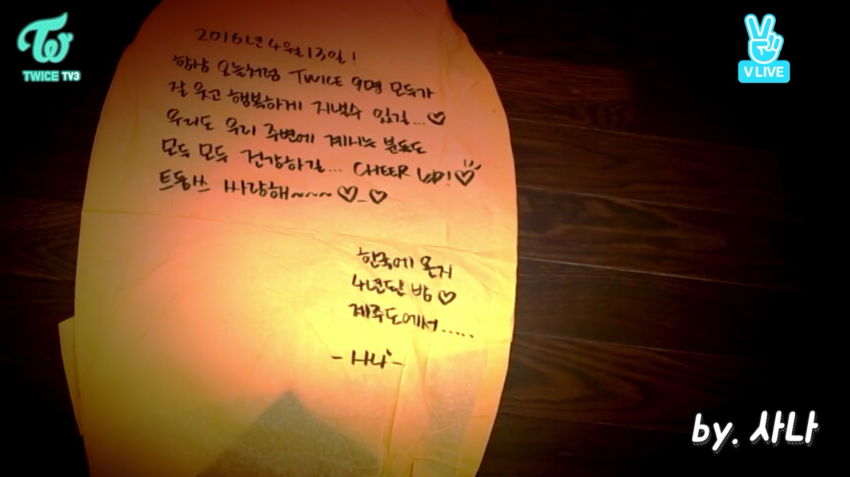 TWICE TV3
V LIVE
2016년 4월 13일!
항상 오늘처럼 TWICE 9명 모두가
잘 웃고 행복하게 지낼수 있길...♡
우리도 우리 주변에 계시는 분들도
모두 모두 건강하길... CHEER UP!♡
트둥쓰 싸랑해~~~~♡_♡
한국에 온지
4년된 밤♡
제주도에서.....
-사나-
by. 사나